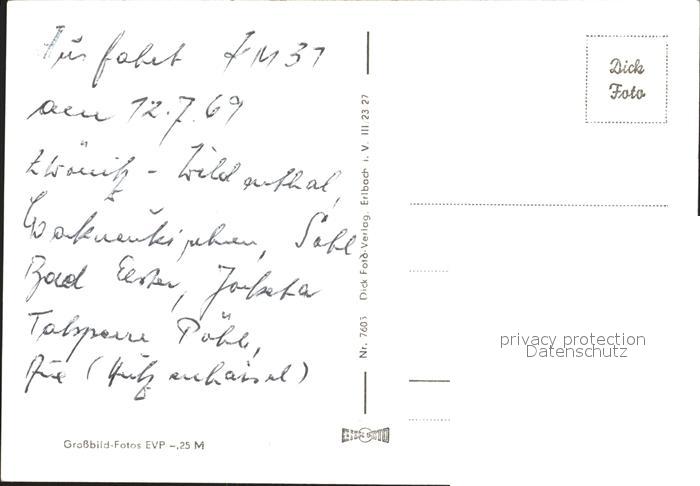 Ausfahrt FM 31
am 12.7.69
Zwönitz - Wildenthal,
Bad Elster, Jocketa
Talsperre Pöhl,
Aue (
Großbild-Fotos EVP -,25 M
Nr. 7603 Dick Foto-Verlag, Erlbach i. V. III 23 27
Dick
Foto
privacy protection
Datenschutz